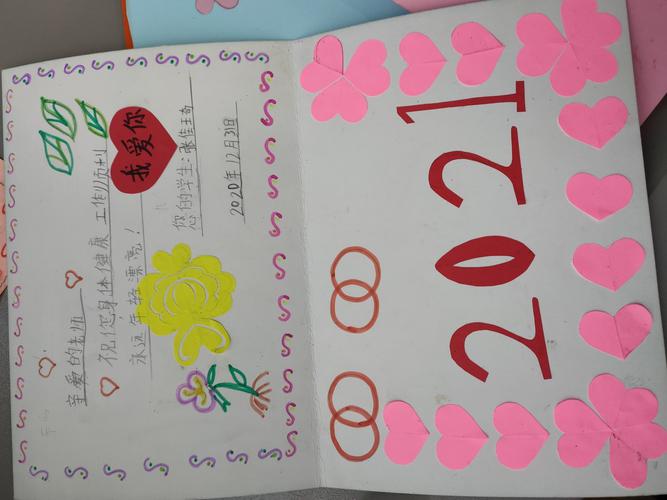 亲爱的老师
祝您身体健康 工作顺利
永远年轻漂亮！
我爱你
您的学生：张佳琦
2020年12月31日
2021